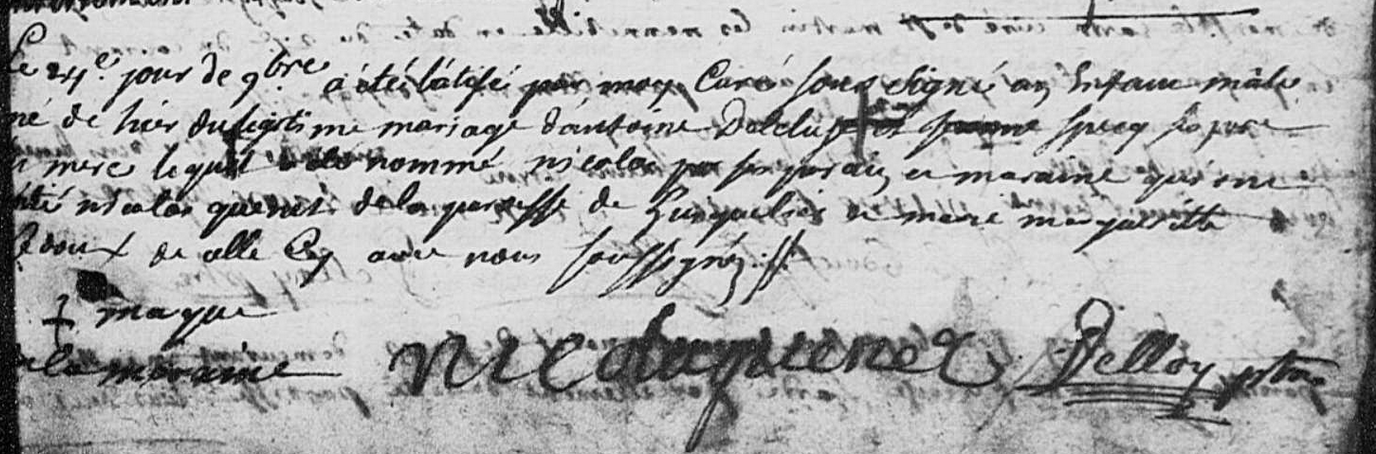 Le 24e. jour de 9bre a été batisé par moy Curé sous signé un Enfant mâle
né de hier du legitime mariage d'antoine Delclu et Specq ses pere
mere lequel a été nommé nicolas par son parain et maraine qui ont
été nicolas quenet de la paroisse de et marie margueritte
de celle Cy avec nous soussignéz
+ marque
de la maraine nicola quenet Delloy ptre